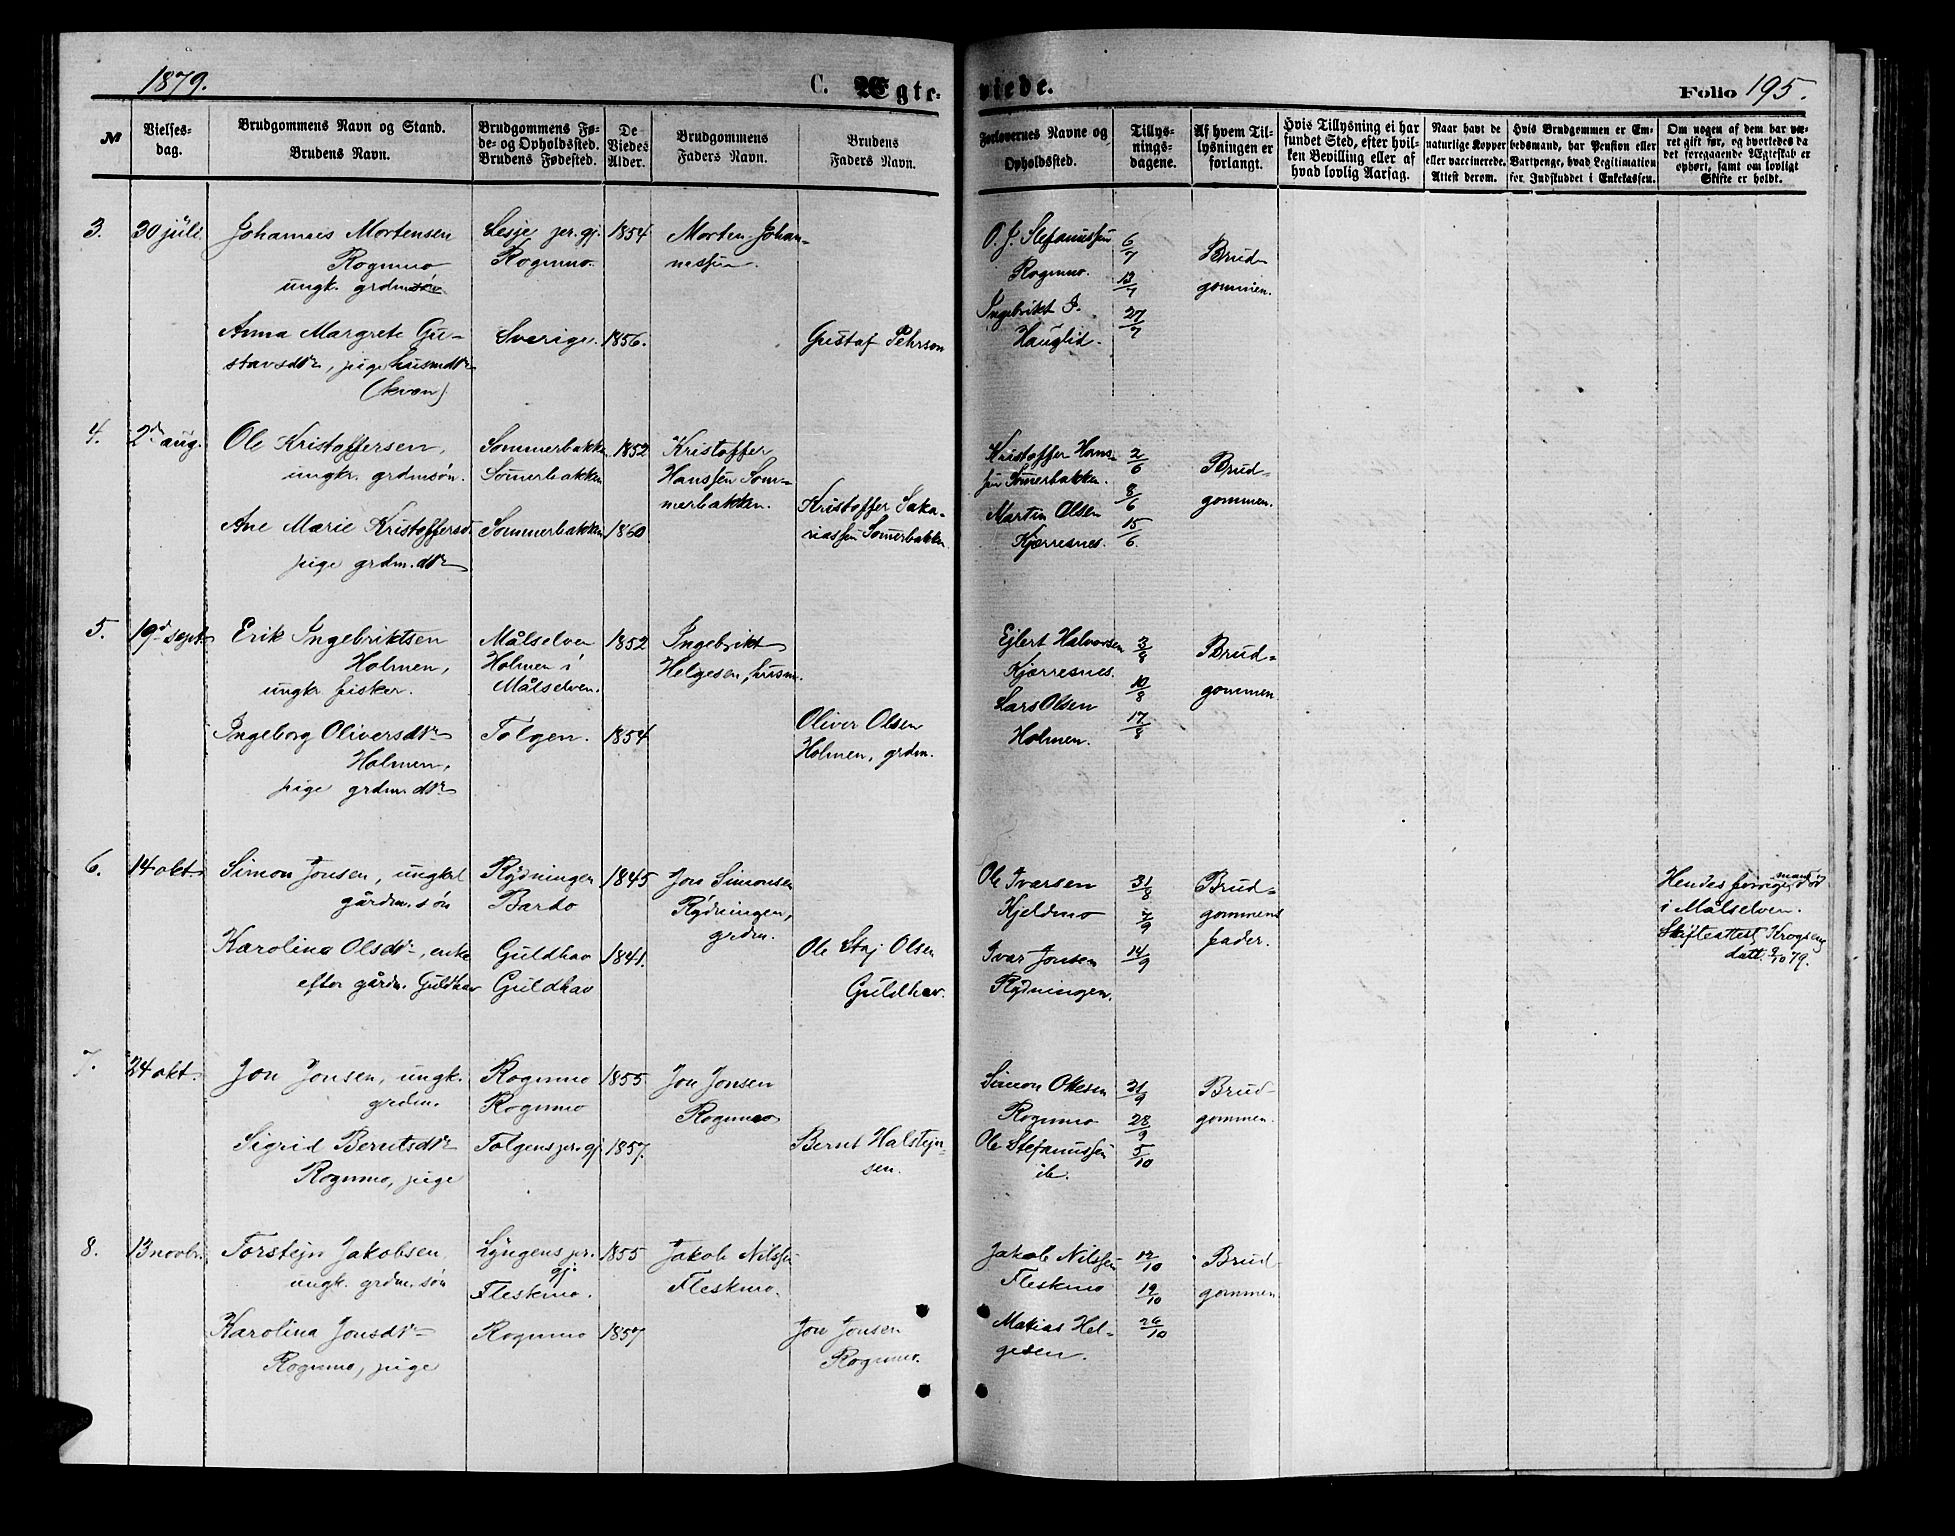 1879.
C. Ægte-
viede.
Folio 195.
№
Vielses-
dag.
Brudgommens Navn og Stand.
Brudens Navn.
Brudgommens Fø-
de- og Opholdssted.
Brudens Fødested.
De
Viedes
Alder.
Brudgommens
Faders Navn.
Brudens
Faders Navn.
Forlovernes Navne og
Opholdssted.
Tillys-
nings-
dagene.
Af hvem Til-
lysningen er
forlangt.
Hvis Tillysning ei har
fundet Sted, efter hvil-
ken Bevilling eller af
hvad lovlig Aarsag.
Naar havt de
naturlige Kopper
eller vaccinerede.
Attest derom.
Hvis Brudgommen er Em-
bedsmand, har Pension eller
Vartpenge, hvad Legitimation
for Indskuddet i Enkekassen.
Om nogen af dem har væ-
ret gift før, og hvorledes da
det foregaaende Ægteskab er
ophørt, samt om lovligt
Skifte er holdt.
3.
30 juli
Johannes Mortensen
Rognmo
ungk. grdmsøn
Lesje pr. gj.
Rognmo.
1854
Morten Johan-
nessen
O. J. Stefanussen
Rognmo.
Ingebrikt J.
Hauglid.
6/7
13/7
27/7
Brud
gommen.
Anna Margrete Gu-
stavsdtr, pige husmdtr
(kvæn)
Sverige.
1856.
Gustaf Pehrson
4.
2d aug.
Ole Kristoffersen,
ungkr. grdmsøn.
Sommerbakken
Somerbakken
1852
Kristoffer
Hanssen Som-
merbakken.
Kristoffer Hans-
sen Somerbakken.
Martin Olsen
Kjærresnes.
2/6
8/6
15/6
Brud-
gommen.
Ane Marie Kristoffersd.
pige grdm. dtr
Sommerbakken
1860
Kristoffer Saka-
riassen Somerbakken
5.
19d sept
Erik Ingebriktsen
Holmen,
ungkr fisker.
Målselven
Holmen i
Målselven.
1852
Ingebrikt
Helgesen, husm.
Ejlert Halvorsen
Kjærresnes.
Lars Olsen
Holmen.
3/8
10/8
17/8
Brud-
gommen
Ingeborg Oliversdtr
Holmen,
pige grdm. dtr
Tolgen.
1854
Oliver Olsen
Holmen, grdm.
6.
14 okt.
Simon Jonsen, ungkrl
gårdm. søn
Rydningen
Bardo
1845
Jon Simonsen
Rydningen,
grdm.
Ole Ivarsen
Kjeldmo
Ivar Jonsen
Rydningen.
31/8
7/9
14/9
Brud-
gommens
fader.
Hendes forrige mand død
i Målselven.
Skifteattest Krogseng
datt. 9/10 79.
Karolina Olsdtr, enke
efter gårdm. Guldhav
Guldhav
Guldhav
1841.
Ole Staj Olsen
Guldhav.
7.
24 okt.
Jon Jonsen, ungk.
grdm.
Rognmo
Rognmo
1855
Jon Jonsen
Rognmo
Simon Olsen
Rognmo
Ole Stefanussen
ib.
21/9
28/9
5/10
Brud-
gommen.
Sigrid Berntsdtr
Rognmo, pige
Tolgens pr. gj
1857.
Bernt Halstejn-
sen.
8.
13 novbr.
Torstejn Jakobsen,
ungk. grdm. søn
Lyngens pr.
gj.
Fleskmo.
1855
Jakob Nilssen
Fleskmo.
Jakob Nilssen
Fleskmo
Matias Hel-
gesen.
12/10
19/10
26/10
Brud
gommen
Karolina Jonsdtr
Rognmo, pige
Rognmo
1857
Jon Jonsen
Rognmo.